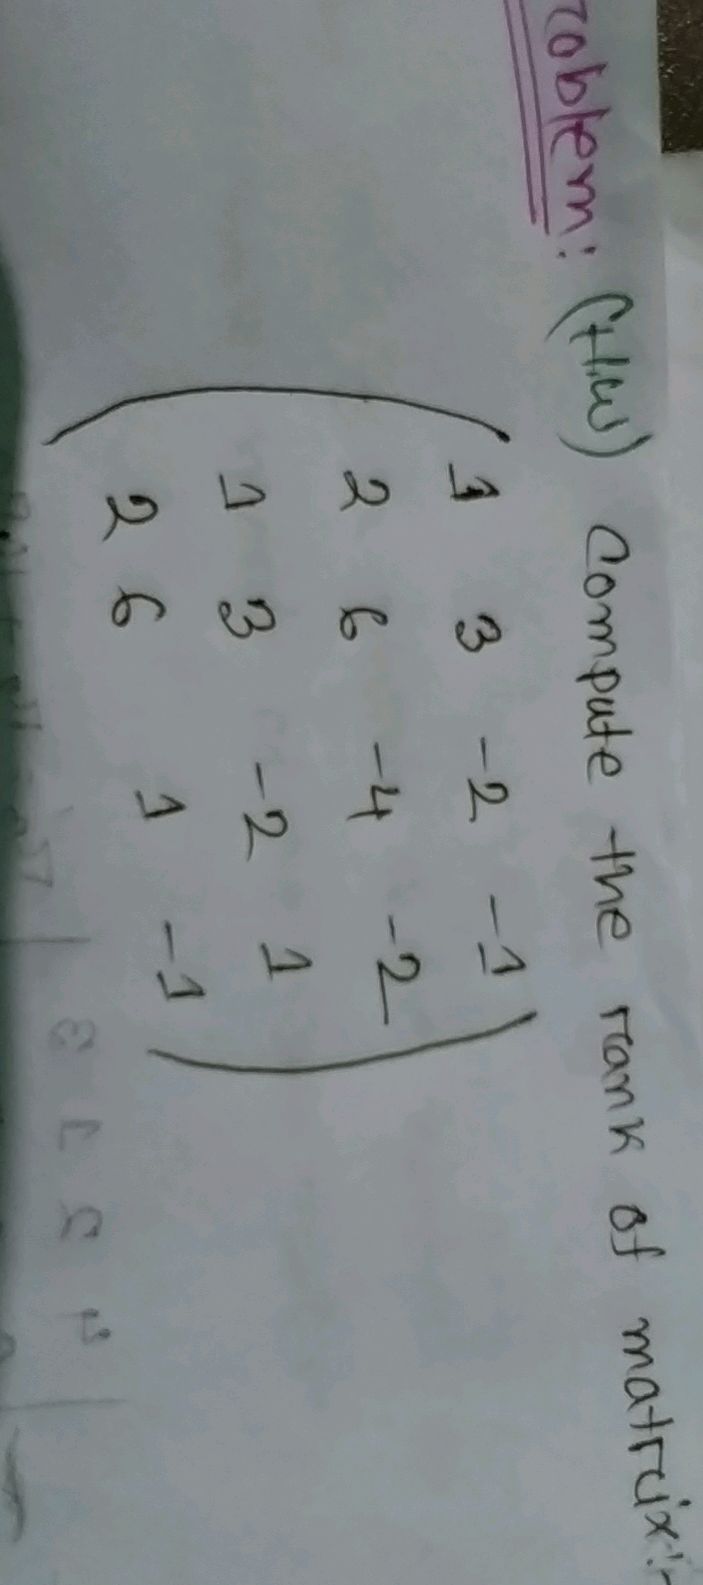 roblem: (H.W) Compute the rank of matrix:-
1 3 -2 -1
2 6 -4 -2
1 3 -2 1
2 6 1 -1